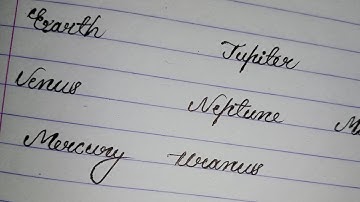 Earth Jupiter
Venus Neptune
Mercury Uranus